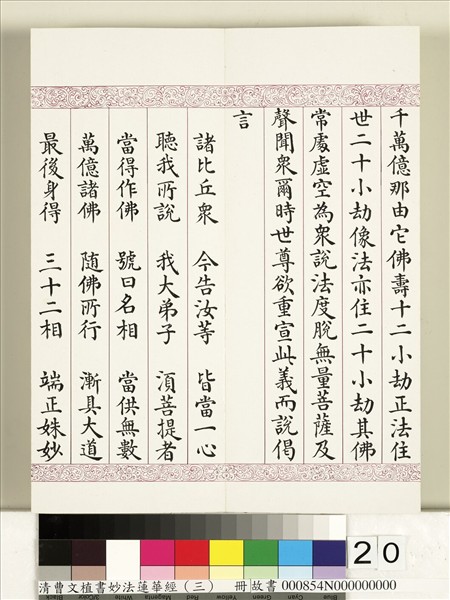 千萬億那由它佛壽十二小劫正法住
世二十小劫像法亦住二十小劫其佛
常處虛空為衆說法度脫無量菩薩及
聲聞衆爾時世尊欲重宣此義而說偈
言
諸比丘衆 今告汝等 皆當一心
聽我所說 我大弟子 湏菩提者
當得作佛 號曰名相 當供無數
萬億諸佛 随佛所行 漸具大道
最後身得 三十二相 端正姝妙
20
清曹文埴書妙法蓮華經（三） 冊 故書 000854N000000000